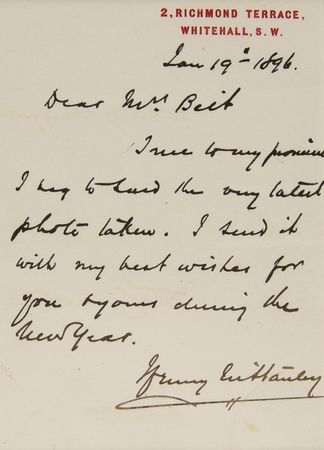 2, RICHMOND TERRACE,
WHITEHALL, S. W.
Jan 19" 1896.
Dear Mrs Beit
True to my promise
I beg to send the very latest
photo taken. I send it
with my best wishes for
you & yours during the
New Year.
Henry M Stanley